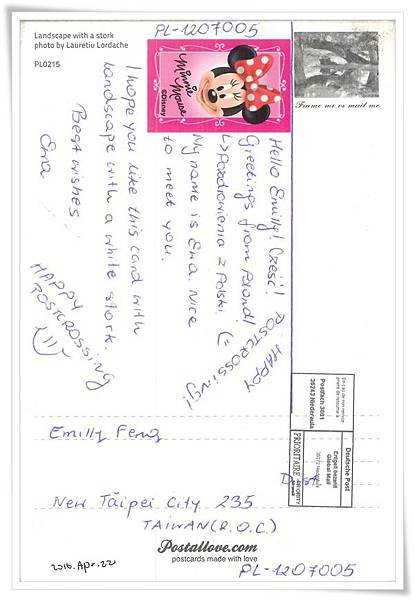 PL-1207005
Landscape with a stork
photo by Lauretiu Lordache
PL0215
Minnie
Mouse
©Disney
Frame me or mail me
Hello Emilly! Cześć!
Greetings from Poland!
↳Pozdrowienia z Polski (=
My name is Ewa. Nice
to meet you.
I hope you like this card with
landscape with a white stork.
Best wishes
Ewa
HAPPY
POSTCROSSING!
HAPPY
POSTCROSSING
En cas de non remise
prière de retourner à
Postfach 3001
36243 Niederaula
Deutsche Post
Entgelt bezahlt
Global Mail
PRIORITAIRE
PRIORITY
Emilly Feng
New Taipei City 235
TAIWAN (R.O.C)
Postallove.com
postcards made with love
2016.Apr.22
PL-1207005